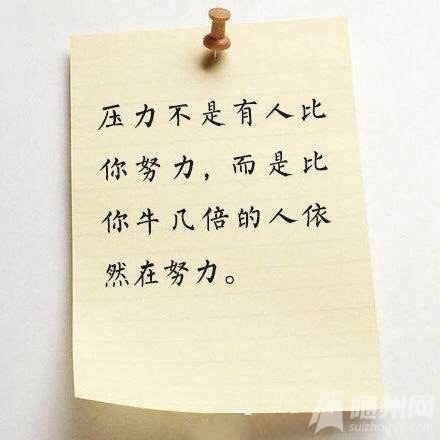 压力不是有人比
你努力，而是比
你牛几倍的人依
然在努力。
随州网